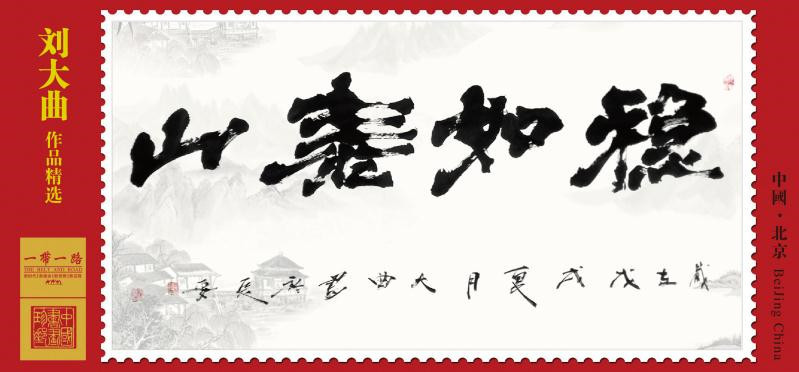 刘大曲
作品精选
一带一路
THE BELT AND ROAD
中國書畫珍藏
稳如泰山
歲在戊戌夏月大曲書於延安
中國·北京 BeiJing China